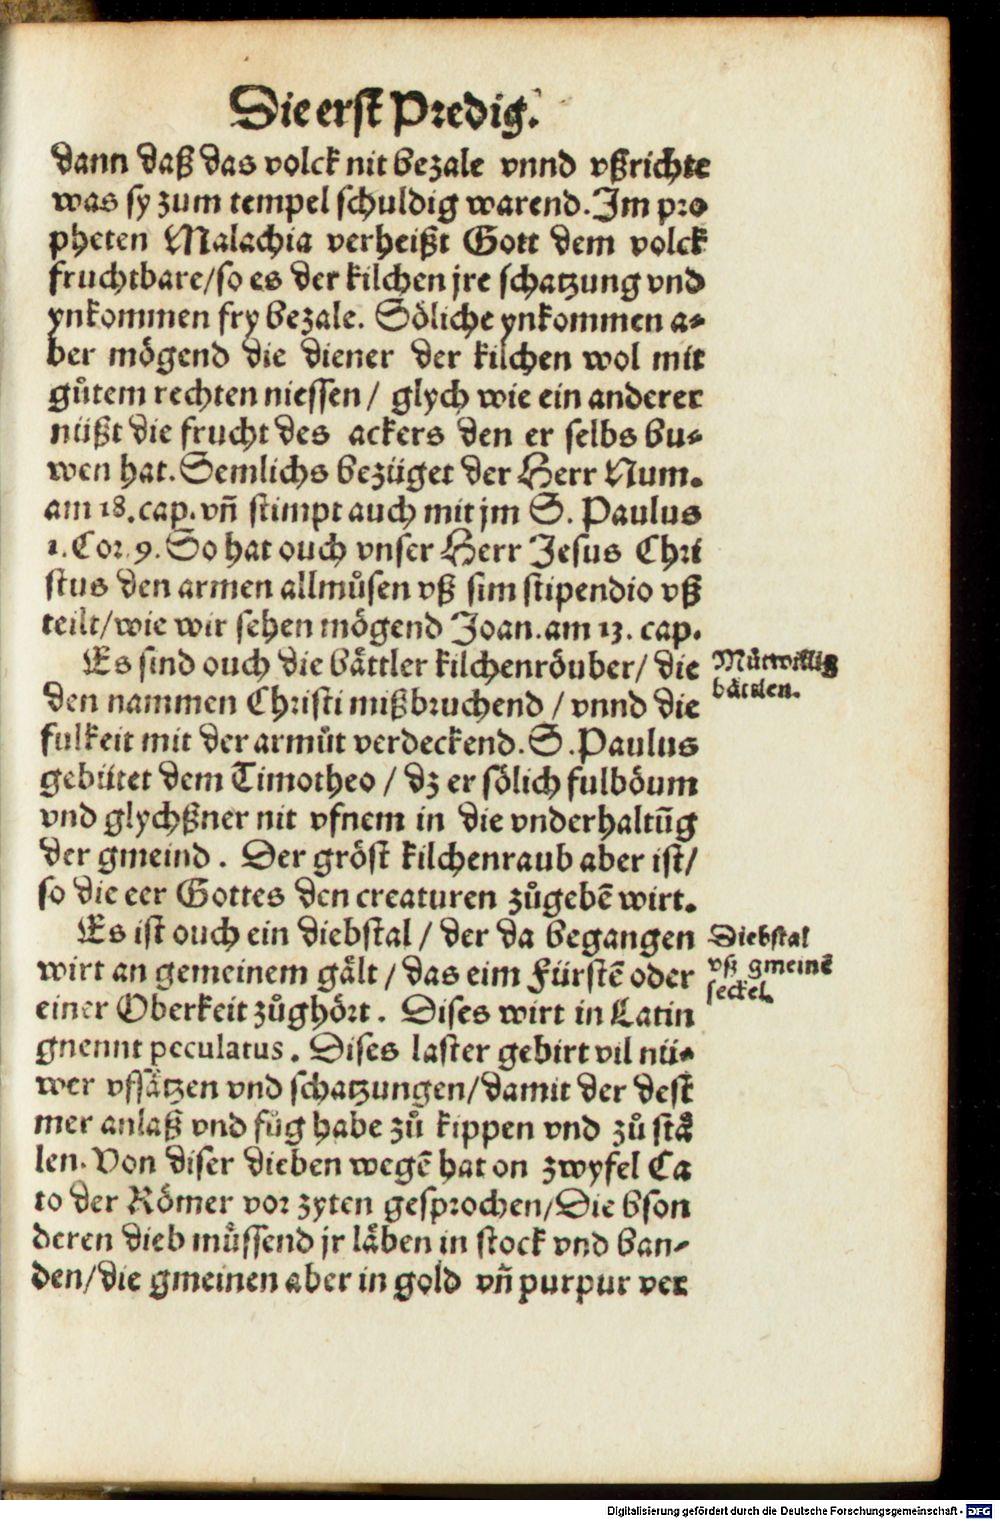 Die erst Predig.
dann daß das volck nit bezale vnnd vßrichte
was sy zum tempel schuldig warend. Im pro
pheten Malachia verheißt Gott dem volck
fruchtbare/so es der kilchen jre schatzung vnd
ynkommen fry bezale. Söliche ynkommen a⸗
ber mögend die diener der kilchen wol mit
gůtem rechten niessen / glych wie ein anderer
nüßt die frucht des ackers den er selbs bu⸗
wen hat. Semlichs bezüget der Herr Num.
am 18. cap. vñ stimpt auch mit jm S. Paulus
1. Cor. 9. So hat ouch vnser Herr Jesus Chri
stus den armen allmůsen vß sim stipendio vß
teilt/wie wir sehen mögend Joan. am 13. cap.
Es sind ouch die bättler kilchenröuber/ die
den nammen Christi mißbruchend / vnnd die
fulkeit mit der armůt verdeckend. S. Paulus
gebütet dem Timotheo / dz er sölich fulböum
vnd glychßner nit vfnem in die vnderhaltũg
der gmeind . Der gröst kilchenraub aber ist/
so die eer Gottes den creaturen zůgebẽ wirt.
Můtwillig
bättlen.
Es ist ouch ein diebstal / der da begangen
wirt an gemeinem gält / das eim Fürstẽ oder
einer Oberkeit zůghört . Dises wirt in Latin
gnennt peculatus . Dises laster gebirt vil nü⸗
wer vfsätzen vnd schatzungen/damit der dest
mer anlaß vnd fůg habe zů kippen vnd zů stä
len. Von diser dieben wegẽ hat on zwyfel Ca
to der Römer vor zyten gesprochen/Die bson
deren dieb müssend jr läben in stock vnd ban⸗
den/die gmeinen aber in gold vñ purpur ver
Diebstal
vß gmeinẽ
seckel.
Digitalisierung gefördert durch die Deutsche Forschungsgemeinschaft - DFG